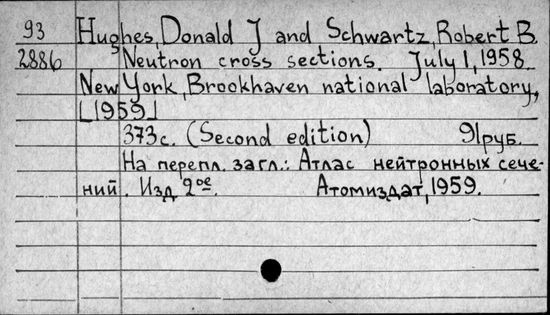 93 Hughes, Donald J and Schwartz, Robert B.
2886 Neutron cross sections. July 1, 1958.
New York, Brookhaven national laboratory,
[1959]
373 с. (Second edition) 91руб.
На перепл. загл.: Атлас нейтронных сече-
ний. Изд 2ое. Атомиздат, 1959.